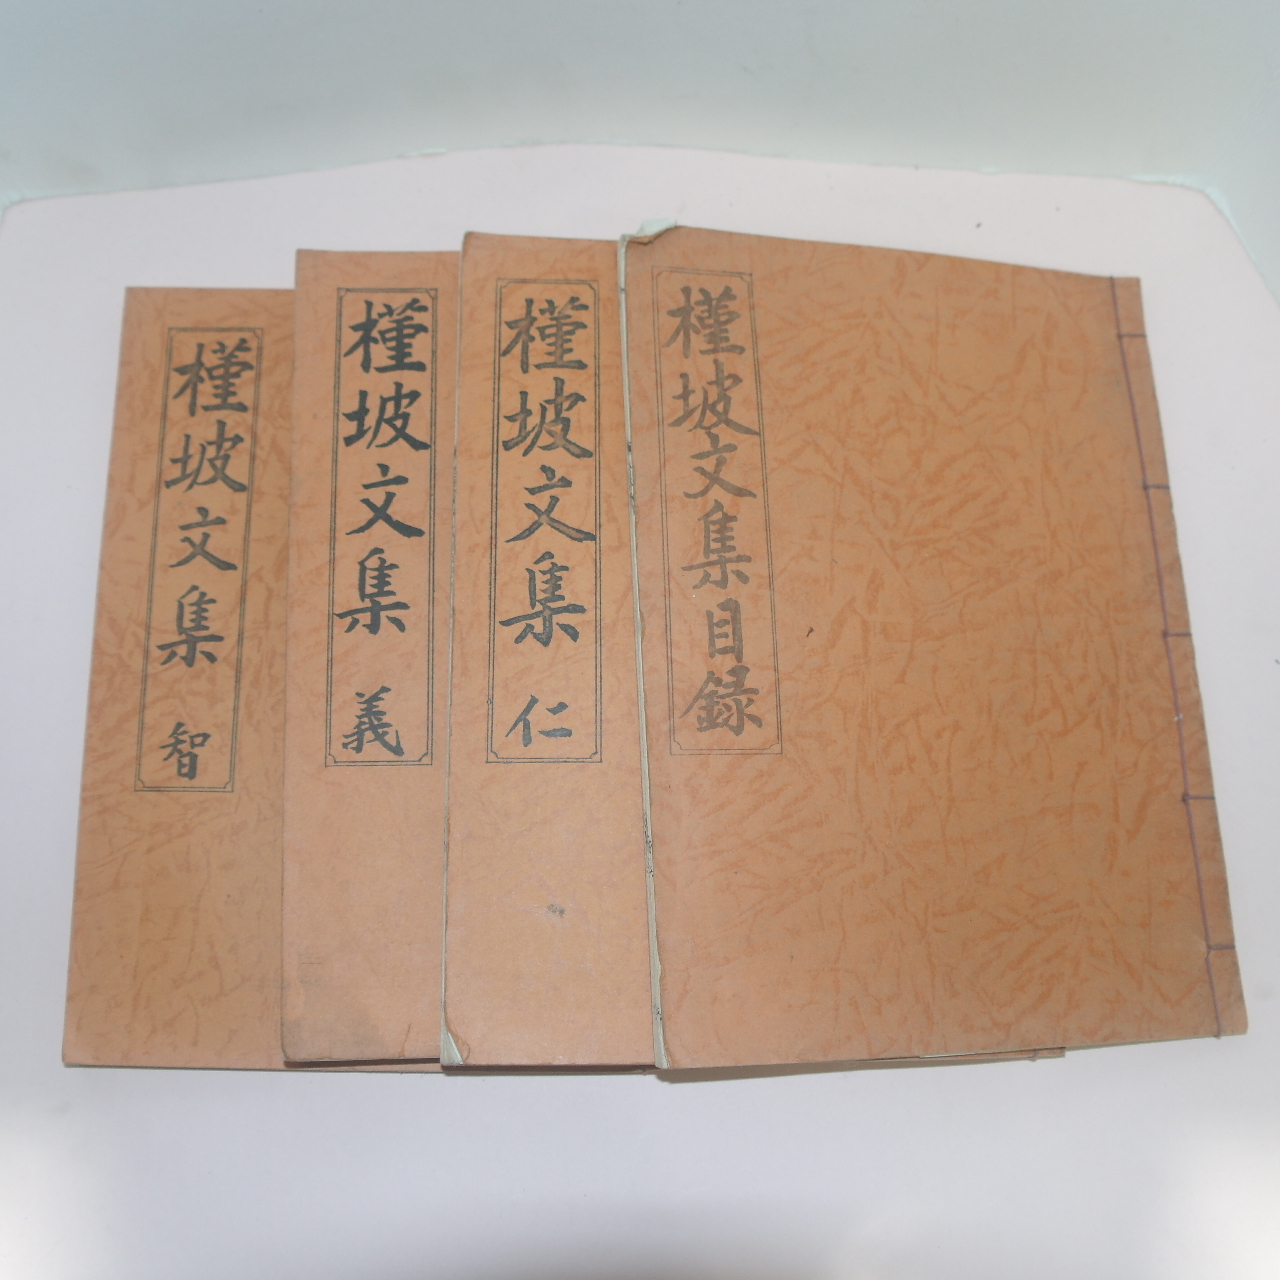 槿坡文集目録
槿坡文集 仁
槿坡文集 義
槿坡文集 智